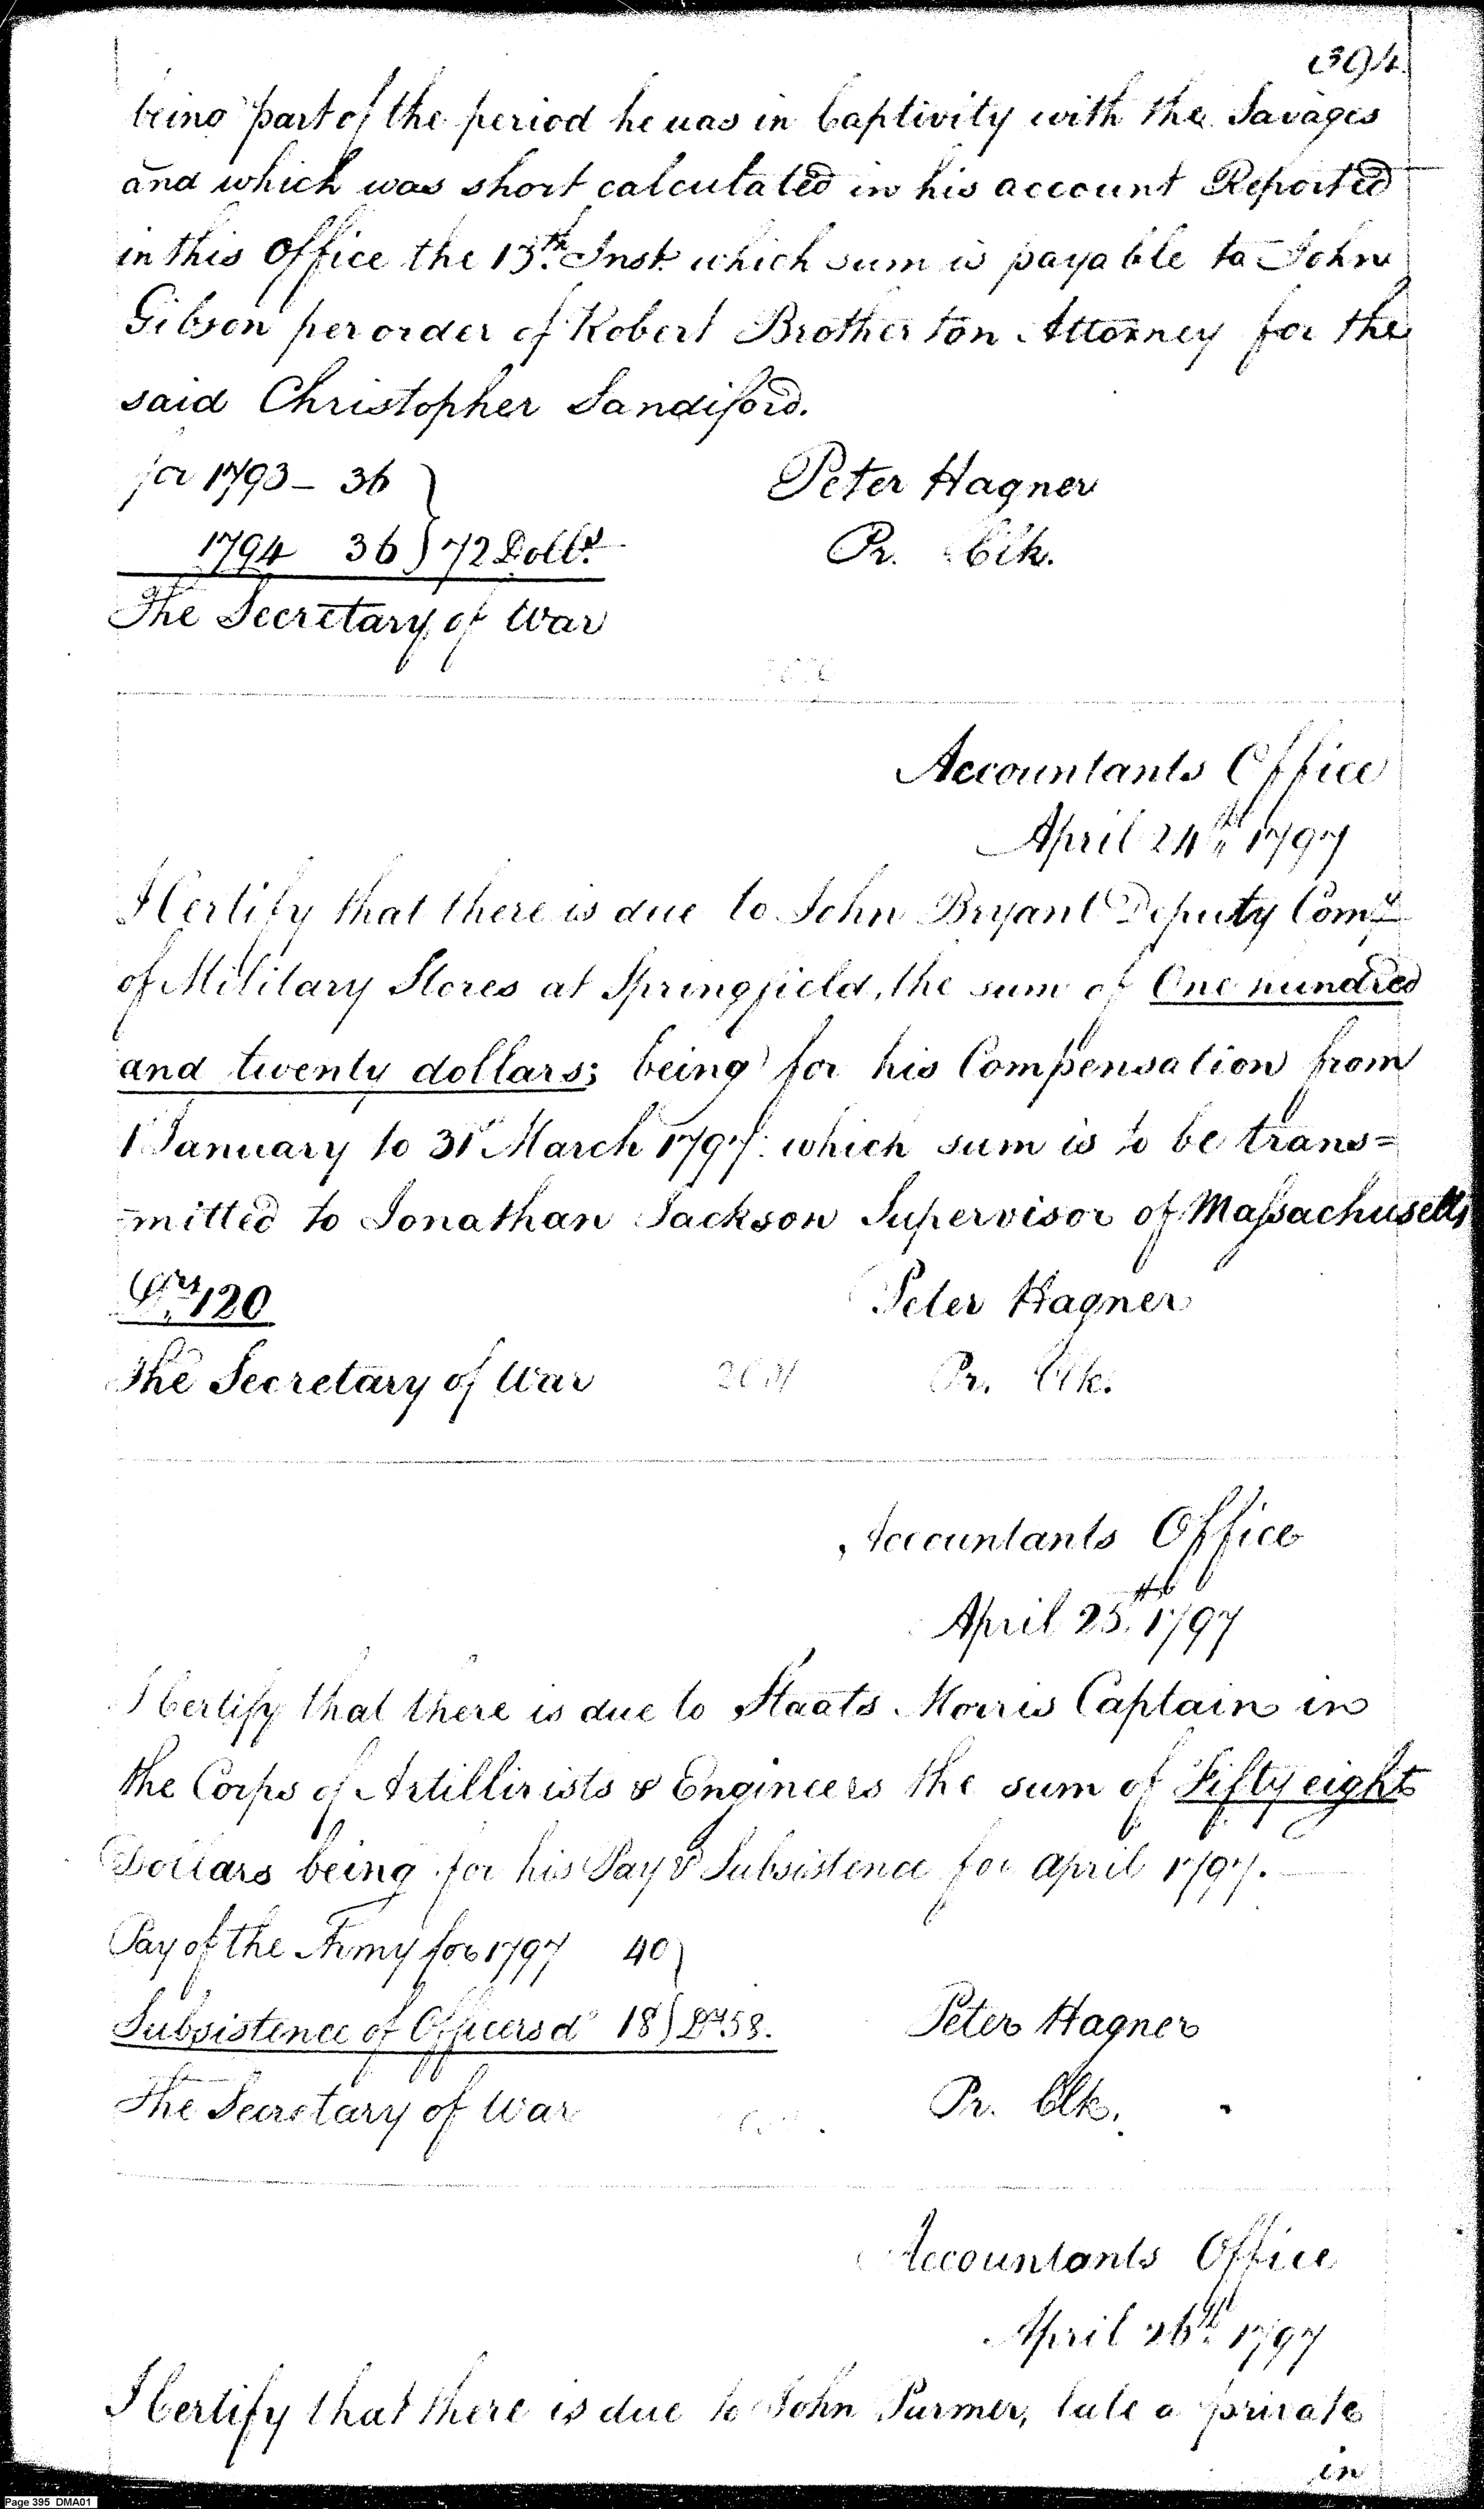 394.
being part of the period he was in Captivity with the Savages
and which was short calculated in his account Reported
in this Office the 13th. Inst. which sum is payable to John
Gibson per order of Robert Brotherton Attorney for the
said Christopher Sandiford.
for 1793 - 36
Peter Hagner
1794 36 } 72 Dolls.
Pr. Clk.
The Secretary of War
Accountants Office
April 24th. 1797
I Certify that there is due to John Bryant Deputy Comy.
of Military Stores at Springfield, the sum of One hundred
and twenty dollars; being for his Compensation from
1 January to 31st March 1797. which sum is to be trans=
=mitted to Jonathan Jackson Supervisor of Massachusetts
Drs. 120
Peter Hagner
The Secretary of War
Pr. Clk.
Accountants Office
April 25th. 1797
I Certify that there is due to Staats Morris Captain in
the Corps of Artillirists & Engineers the sum of Fifty eight
Dollars being for his Pay & Subsistence for april 1797.
Pay of the Army for 1797 40
Subsistence of Officers do 18 } Drs. 58.
Peter Hagner
The Secretary of War
Pr. Clk.
Accountants Office
April 26th. 1797
I Certify that there is due to John Purmer, late a private
in
Page 395 DMA01